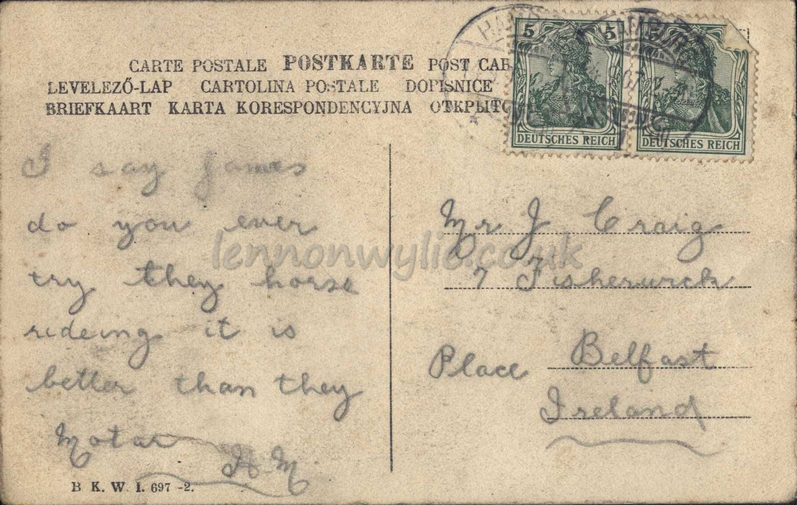 CARTE POSTALE POSTKARTE POST CAR
LEVELEZŐ-LAP CARTOLINA POSTALE DOPISNICE
BRIEFKAART KARTA KORESPONDENCYJNA ОТКРЫТО
5 5
DEUTSCHES REICH DEUTSCHES REICH
HAMBURG
07
I say James
do you ever
try they horse
rideing it is
better than they
Motar
H M
Mr J Craig
7 Fisherwick
Place Belfast
Ireland
B K. W. I. 697 -2.
lennonwylie.co.uk